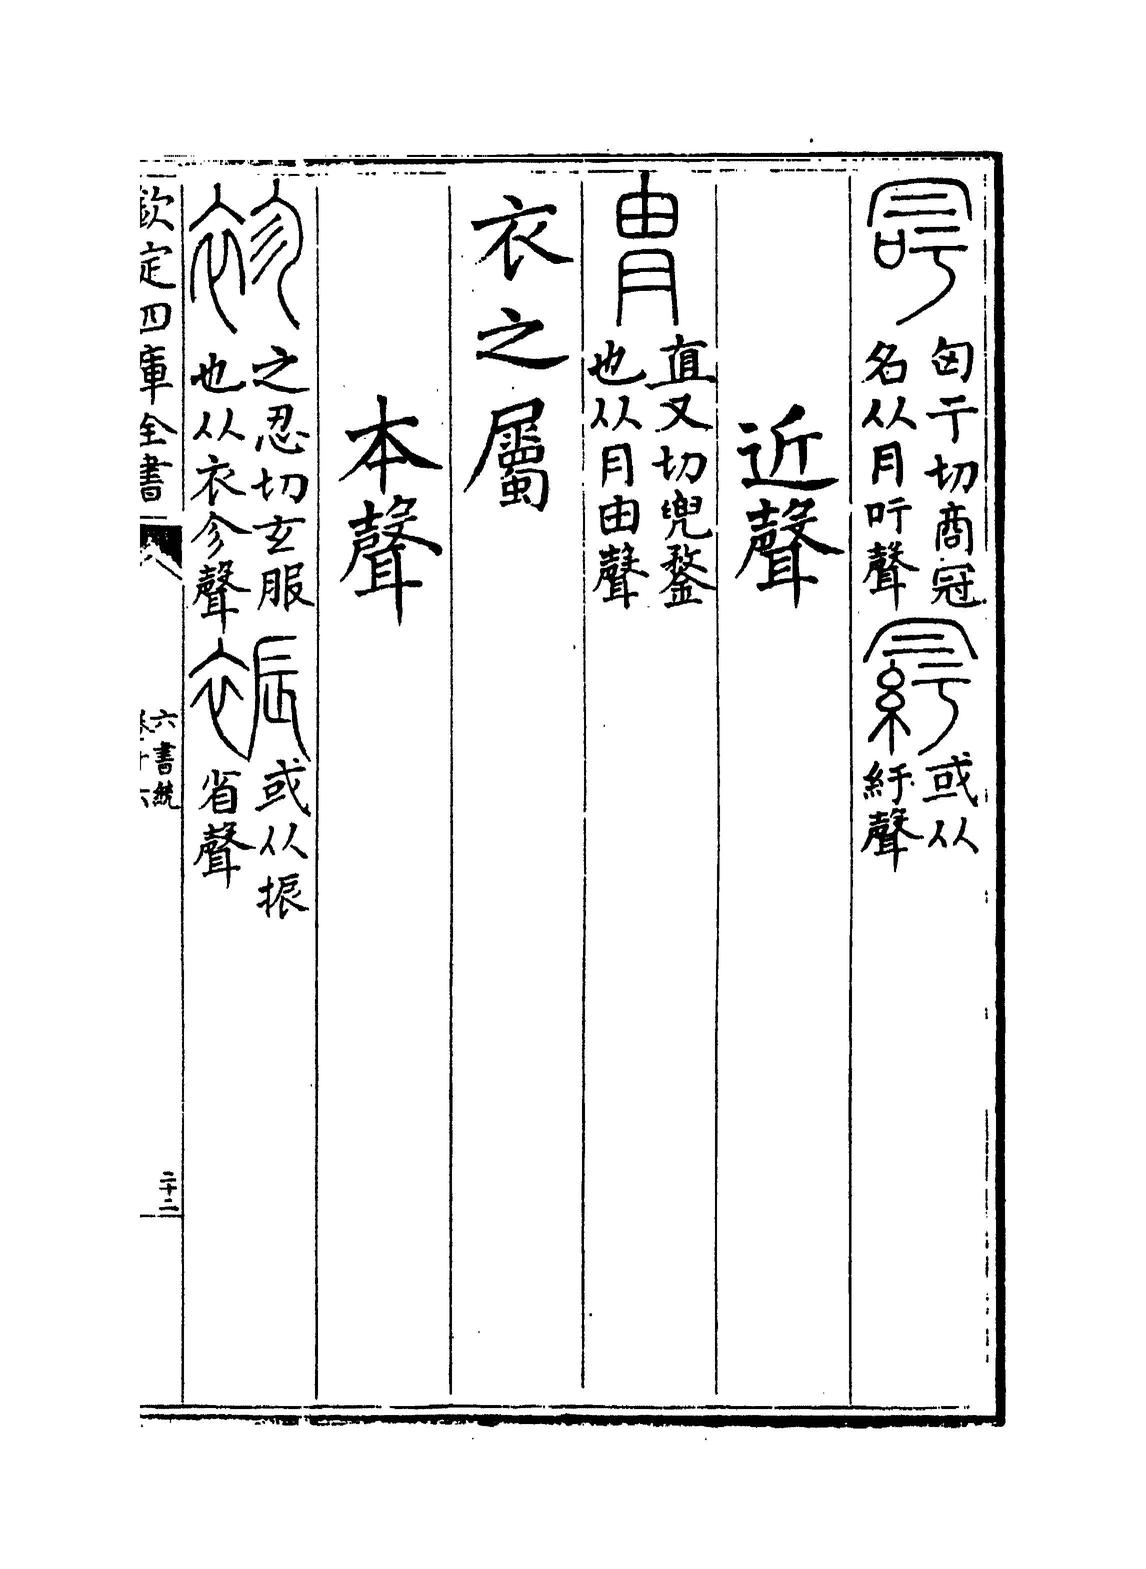 匈于切商冠
名从冃吁聲
或从
紆聲
近聲
冑
直又切兜鍪
也从冃由聲
衣之屬
本聲
袗
之忍切玄服
也从衣㐱聲
裖
或从振
省聲
欽定四庫全書
六書統
卷十六
二十二